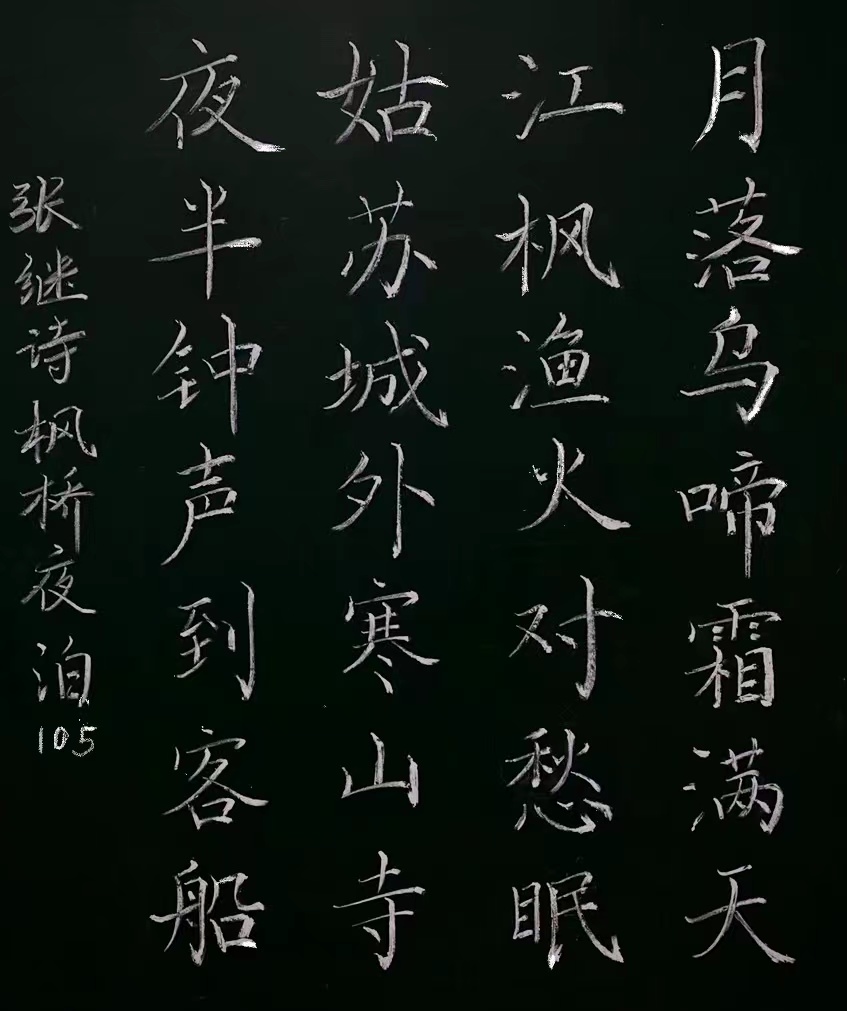 月落乌啼霜满天
江枫渔火对愁眠
姑苏城外寒山寺
夜半钟声到客船
张继诗枫桥夜泊
105